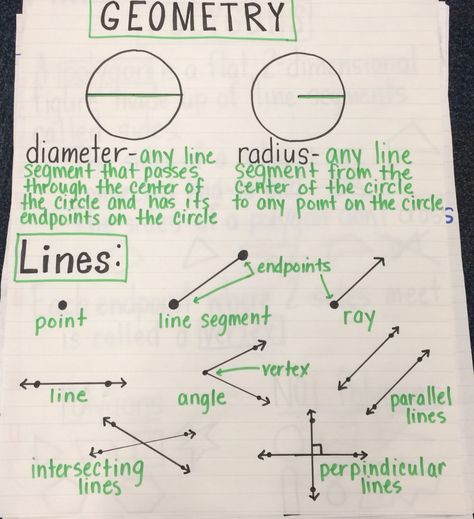 GEOMETRY
diameter-any line
segment that passes
through the center of
the circle and has its
endpoints on the circle
radius-any line
segment from the
center of the circle
to any point on the circle.
Lines:
endpoints
point
line segment
ray
vertex
line
angle
parallel
lines
intersecting
lines
perpindicular
lines